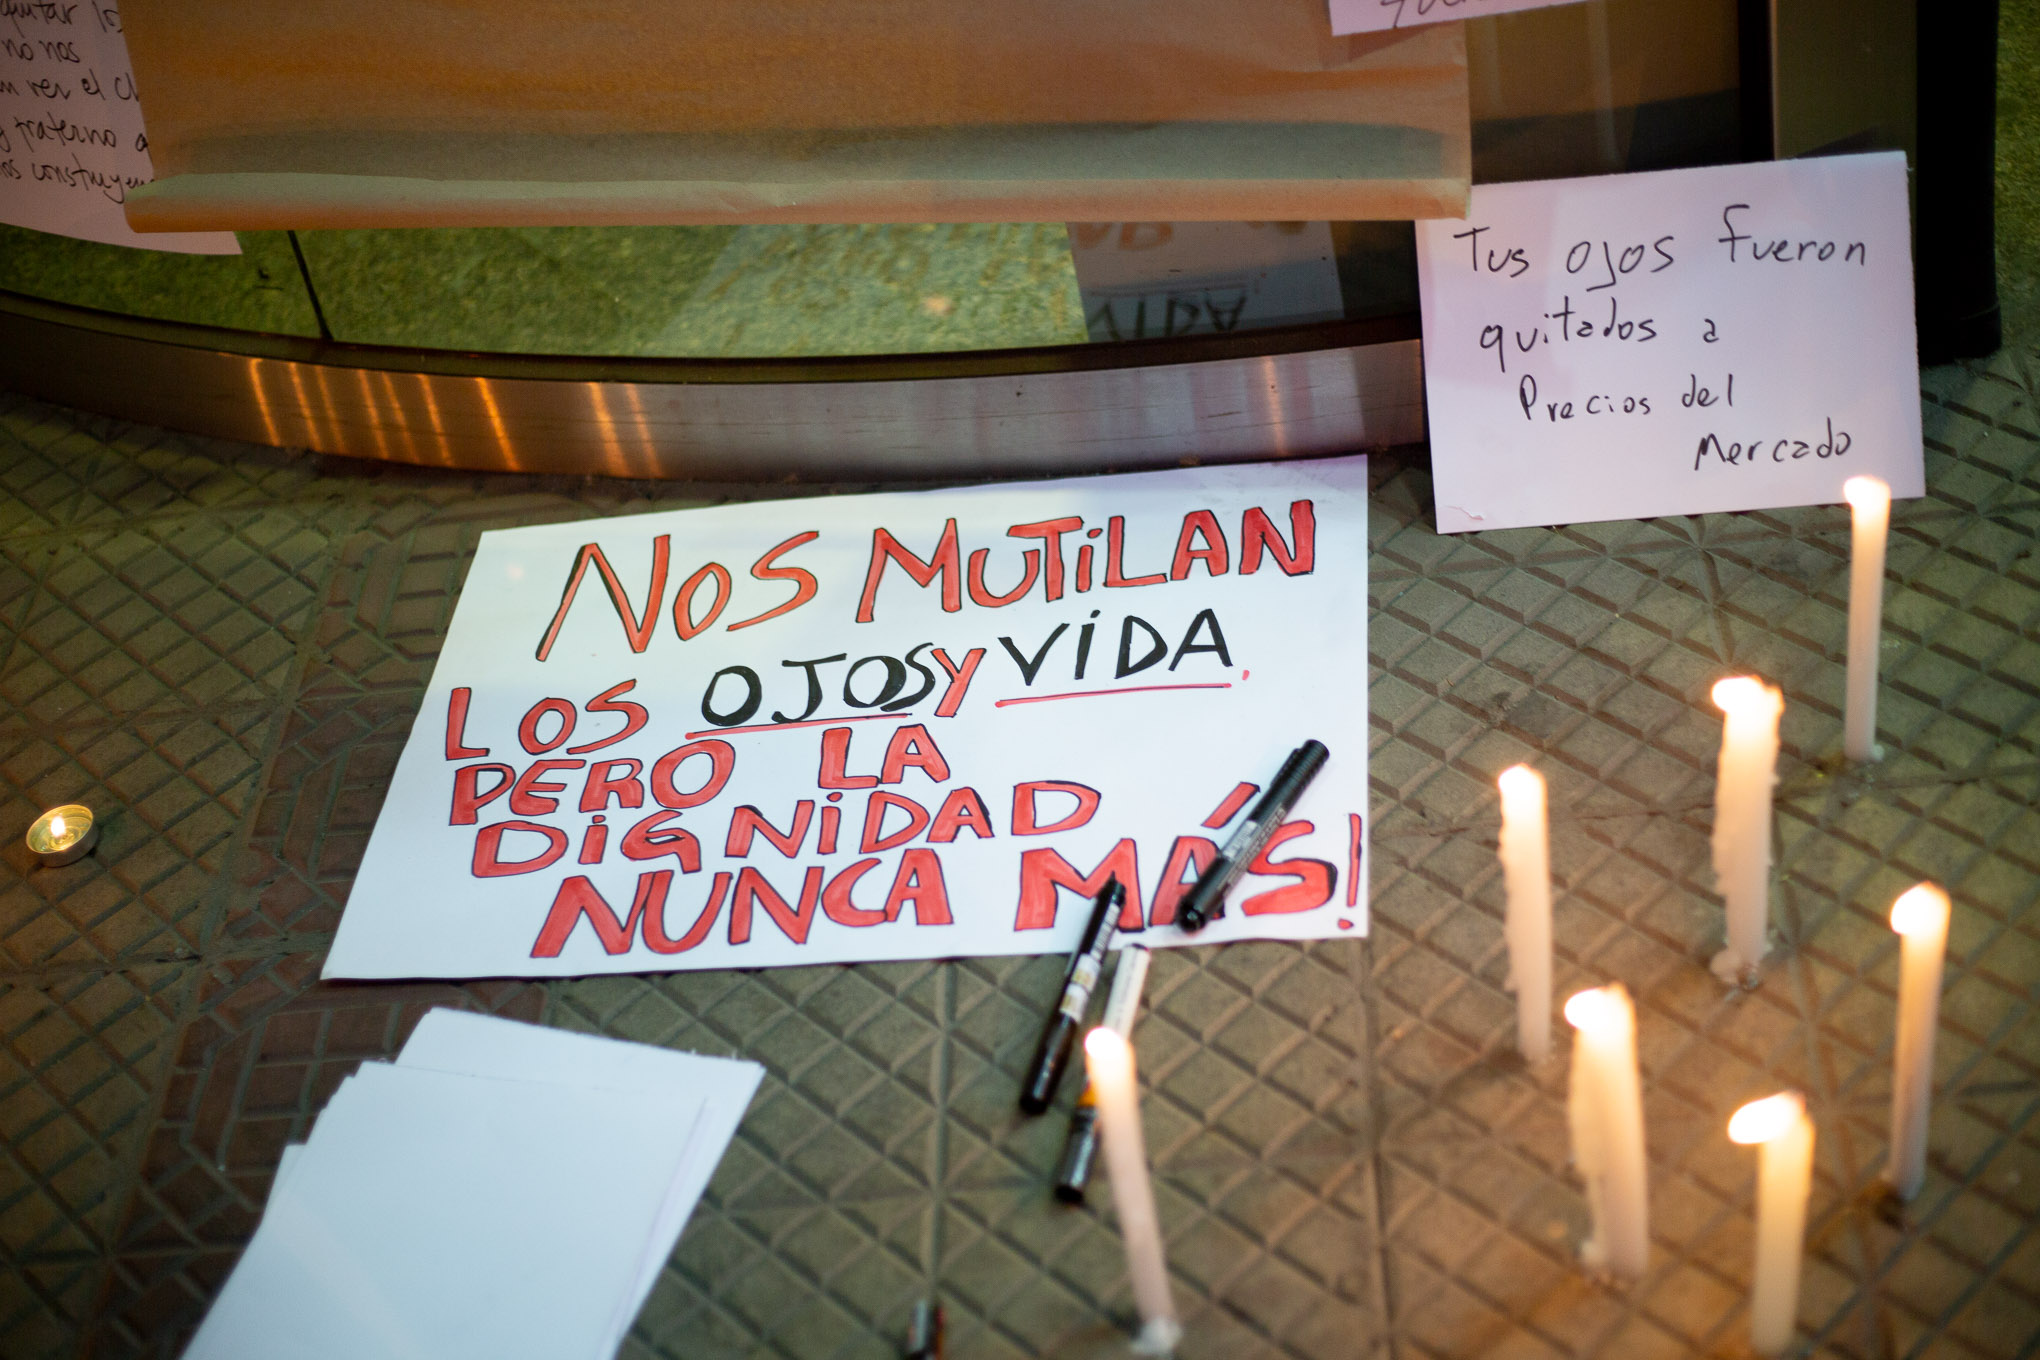 no nos
ver el
y fraterno a
Tus ojos fueron
quitados a
Precios del
Mercado
NOS MUTiLAN
LOS OJOS Y ViDA.
PERO LA
DiGNiDAD
NUNCA MÁS!
ViDA